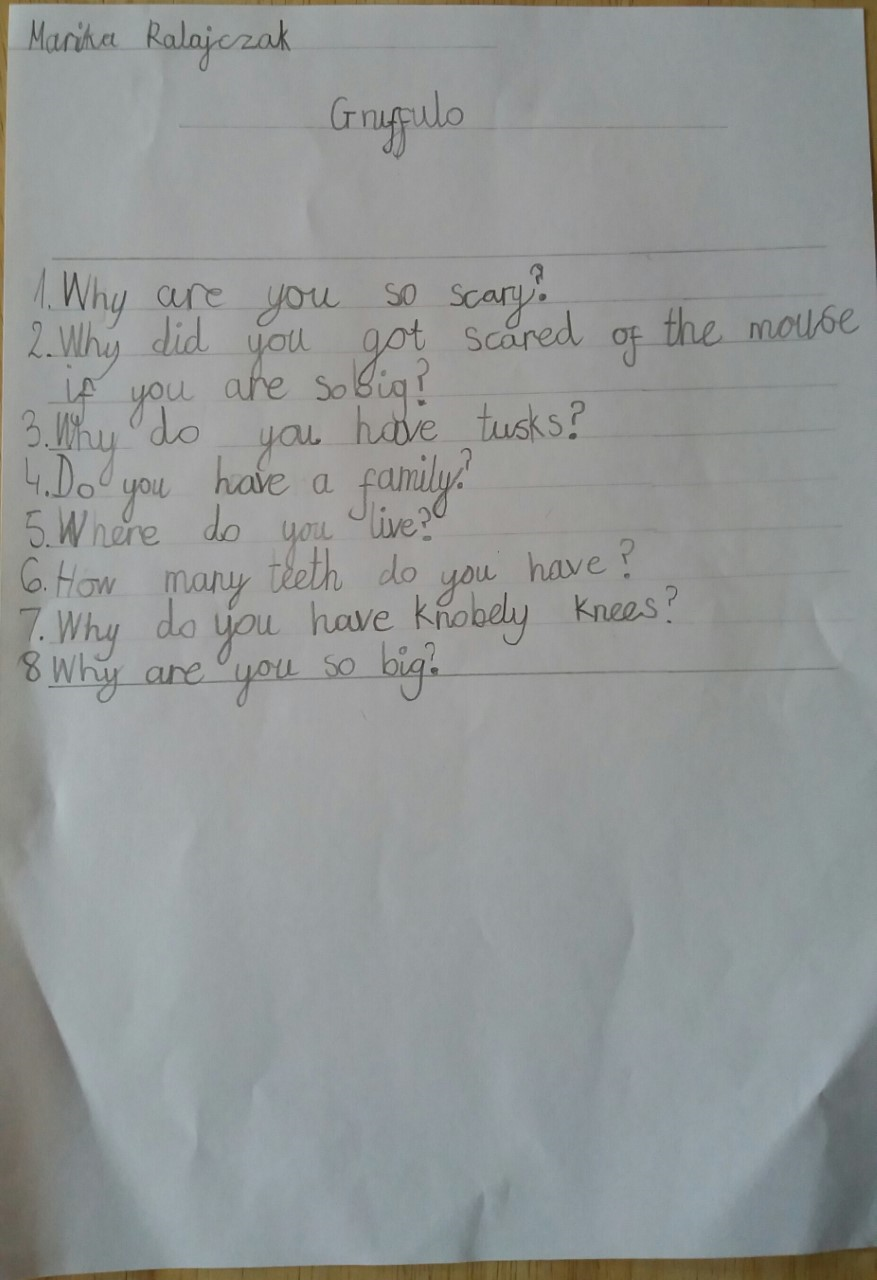 Marika Ralajczak
Gruffulo
1. Why are you so scary?
2. Why did you got scared of the mouse
if you are so big?
3. Why do you have tusks?
4. Do you have a family?
5. Where do you live?
6. How many teeth do you have?
7. Why do you have knobely knees?
8 Why are you so big?